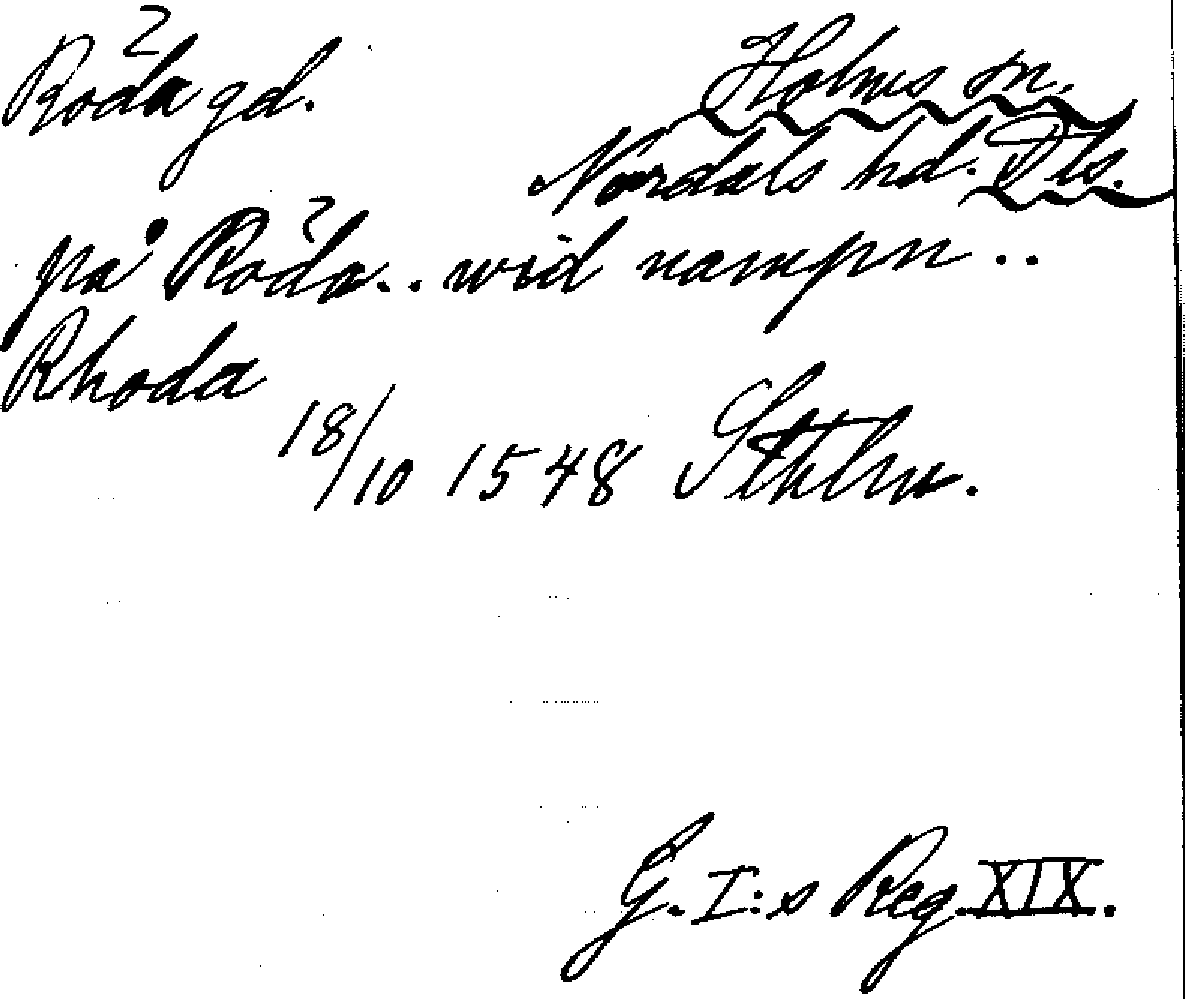 Roda 2 gd.
Holms sn.
Nordals hd. Dls.
på Roda 2 .. wid nampn ..
Rhoda
18/10 1548 Sthlm.
G. I:s Reg. XIX.